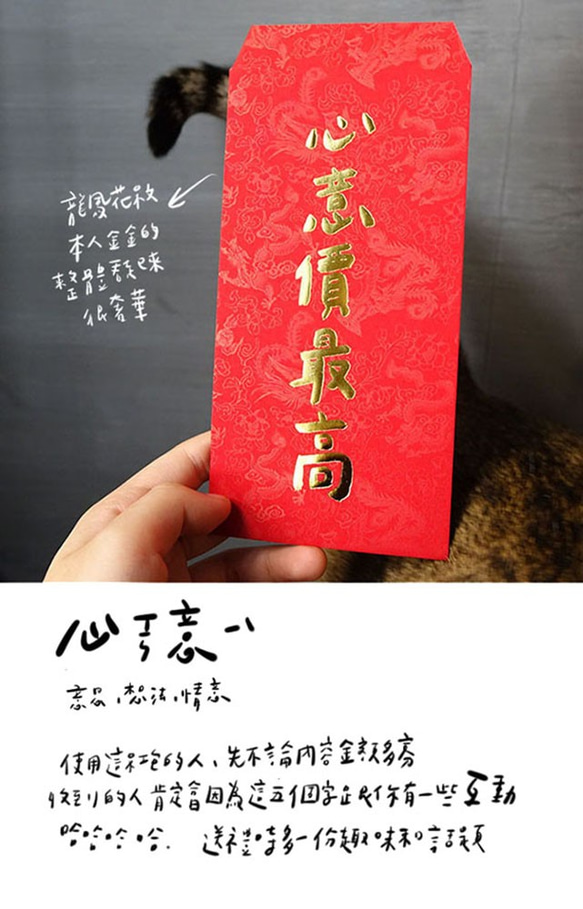 心意價最高
龍鳳花紋
本人金金的
整體看起來
很奢華
心ㄒ意ㄧˋ
意思、想法、情意
使用這紅包的人、先不論內容金額多寡
收到的人肯定會因為這五個字跟你有一些互動
哈哈哈哈. 送禮時多一份趣味和話題